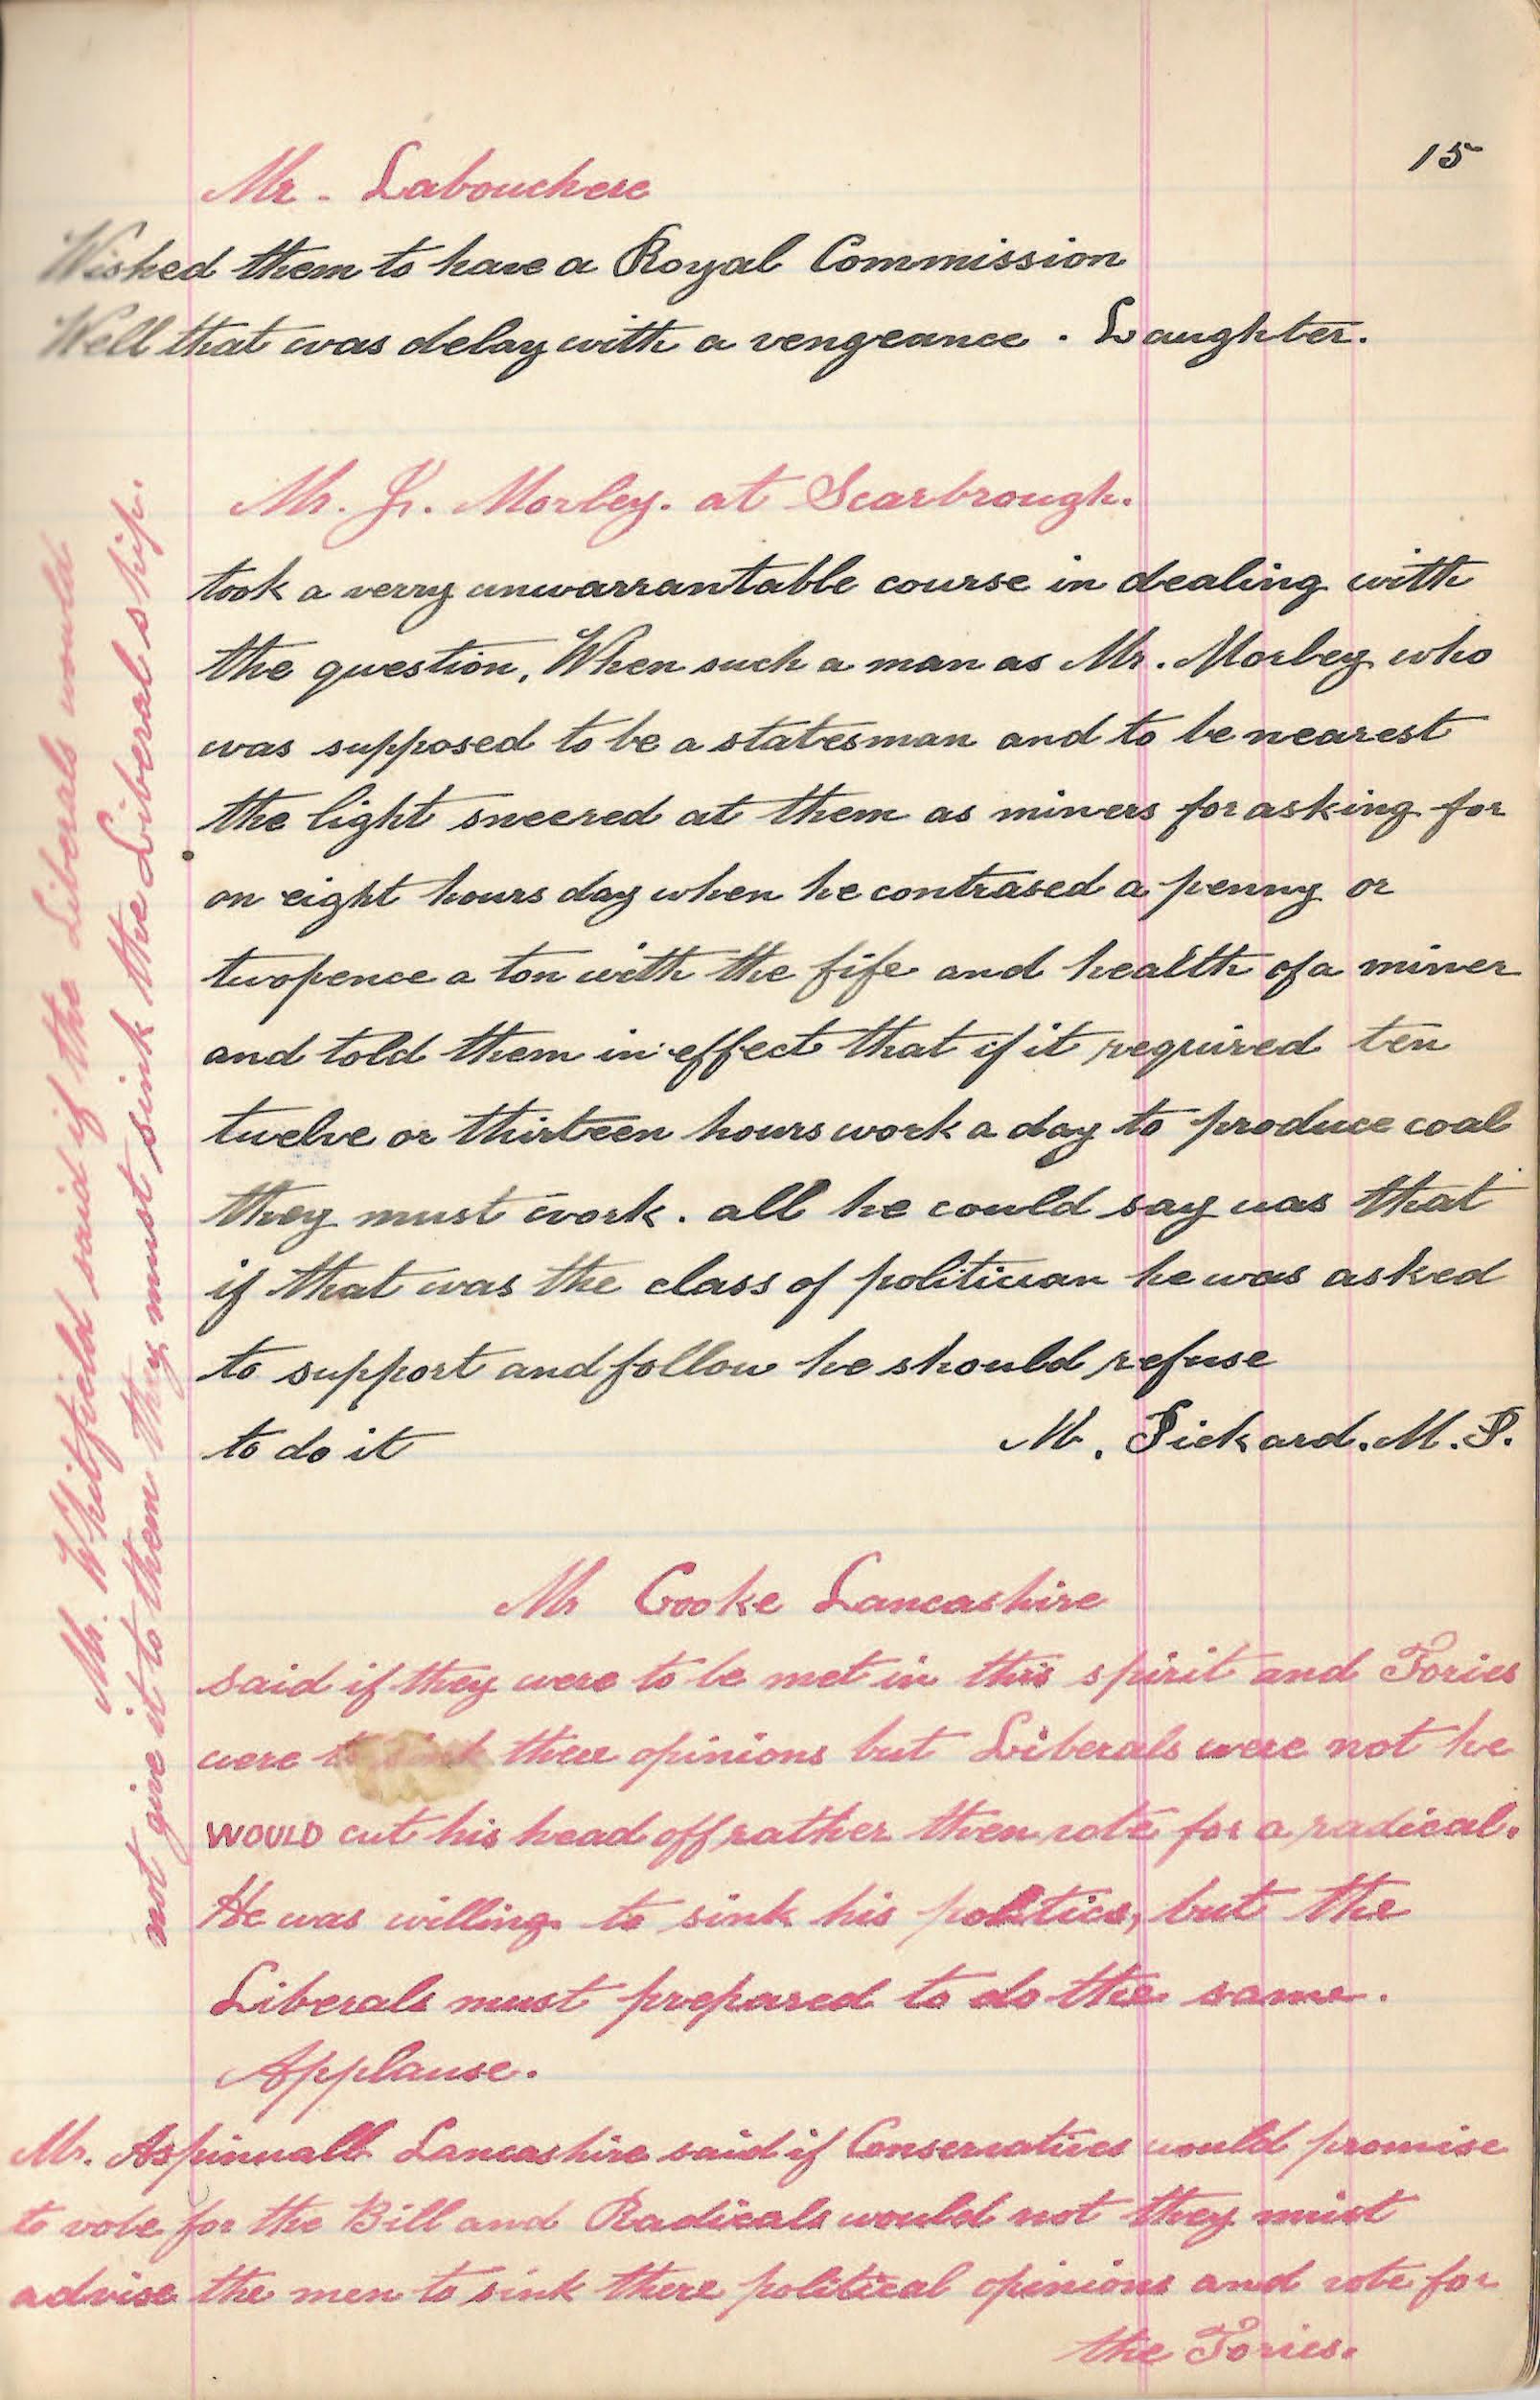 15
Mr - Labouchere
Wished them to have a Royal Commission
Well that was delay with a vengeance . Laughter.
Mr. J. Morley. at Scarbrough.
took a verry unwarrantable course in dealing with
the question, When such a man as Mr. Morley who
was supposed to be a statesman and to be nearest
the light sneered at them as miners for asking for
an eight hours day when he contrased a penny or
twopence a ton with the fife and health of a miner
and told them in effect that if it required ten
twelve or thirteen hours work a day to produce coal
they must work. all he could say was that
if that was the class of politician he was asked
to support and follow he should refuse
to do it
M. Pickard. M. P.
Mr Cooke Lancashire
said if they were to be met in this spirit and Tories
were to sink their opinions but Liberals were not he
WOULD cut his head off rather then vote for a radical.
He was willing to sink his politics, but the
Liberals must prepared to do the same.
Applause.
Mr. Aspinwall Lancashire said if Conservatives would promise
to vote for the Bill and Radicals would not they must
advise the men to sink there political opinions and vote for
the Tories.
Mr. Whitfield said if the Liberals would
not give it to them they must sink the Liberal ship.